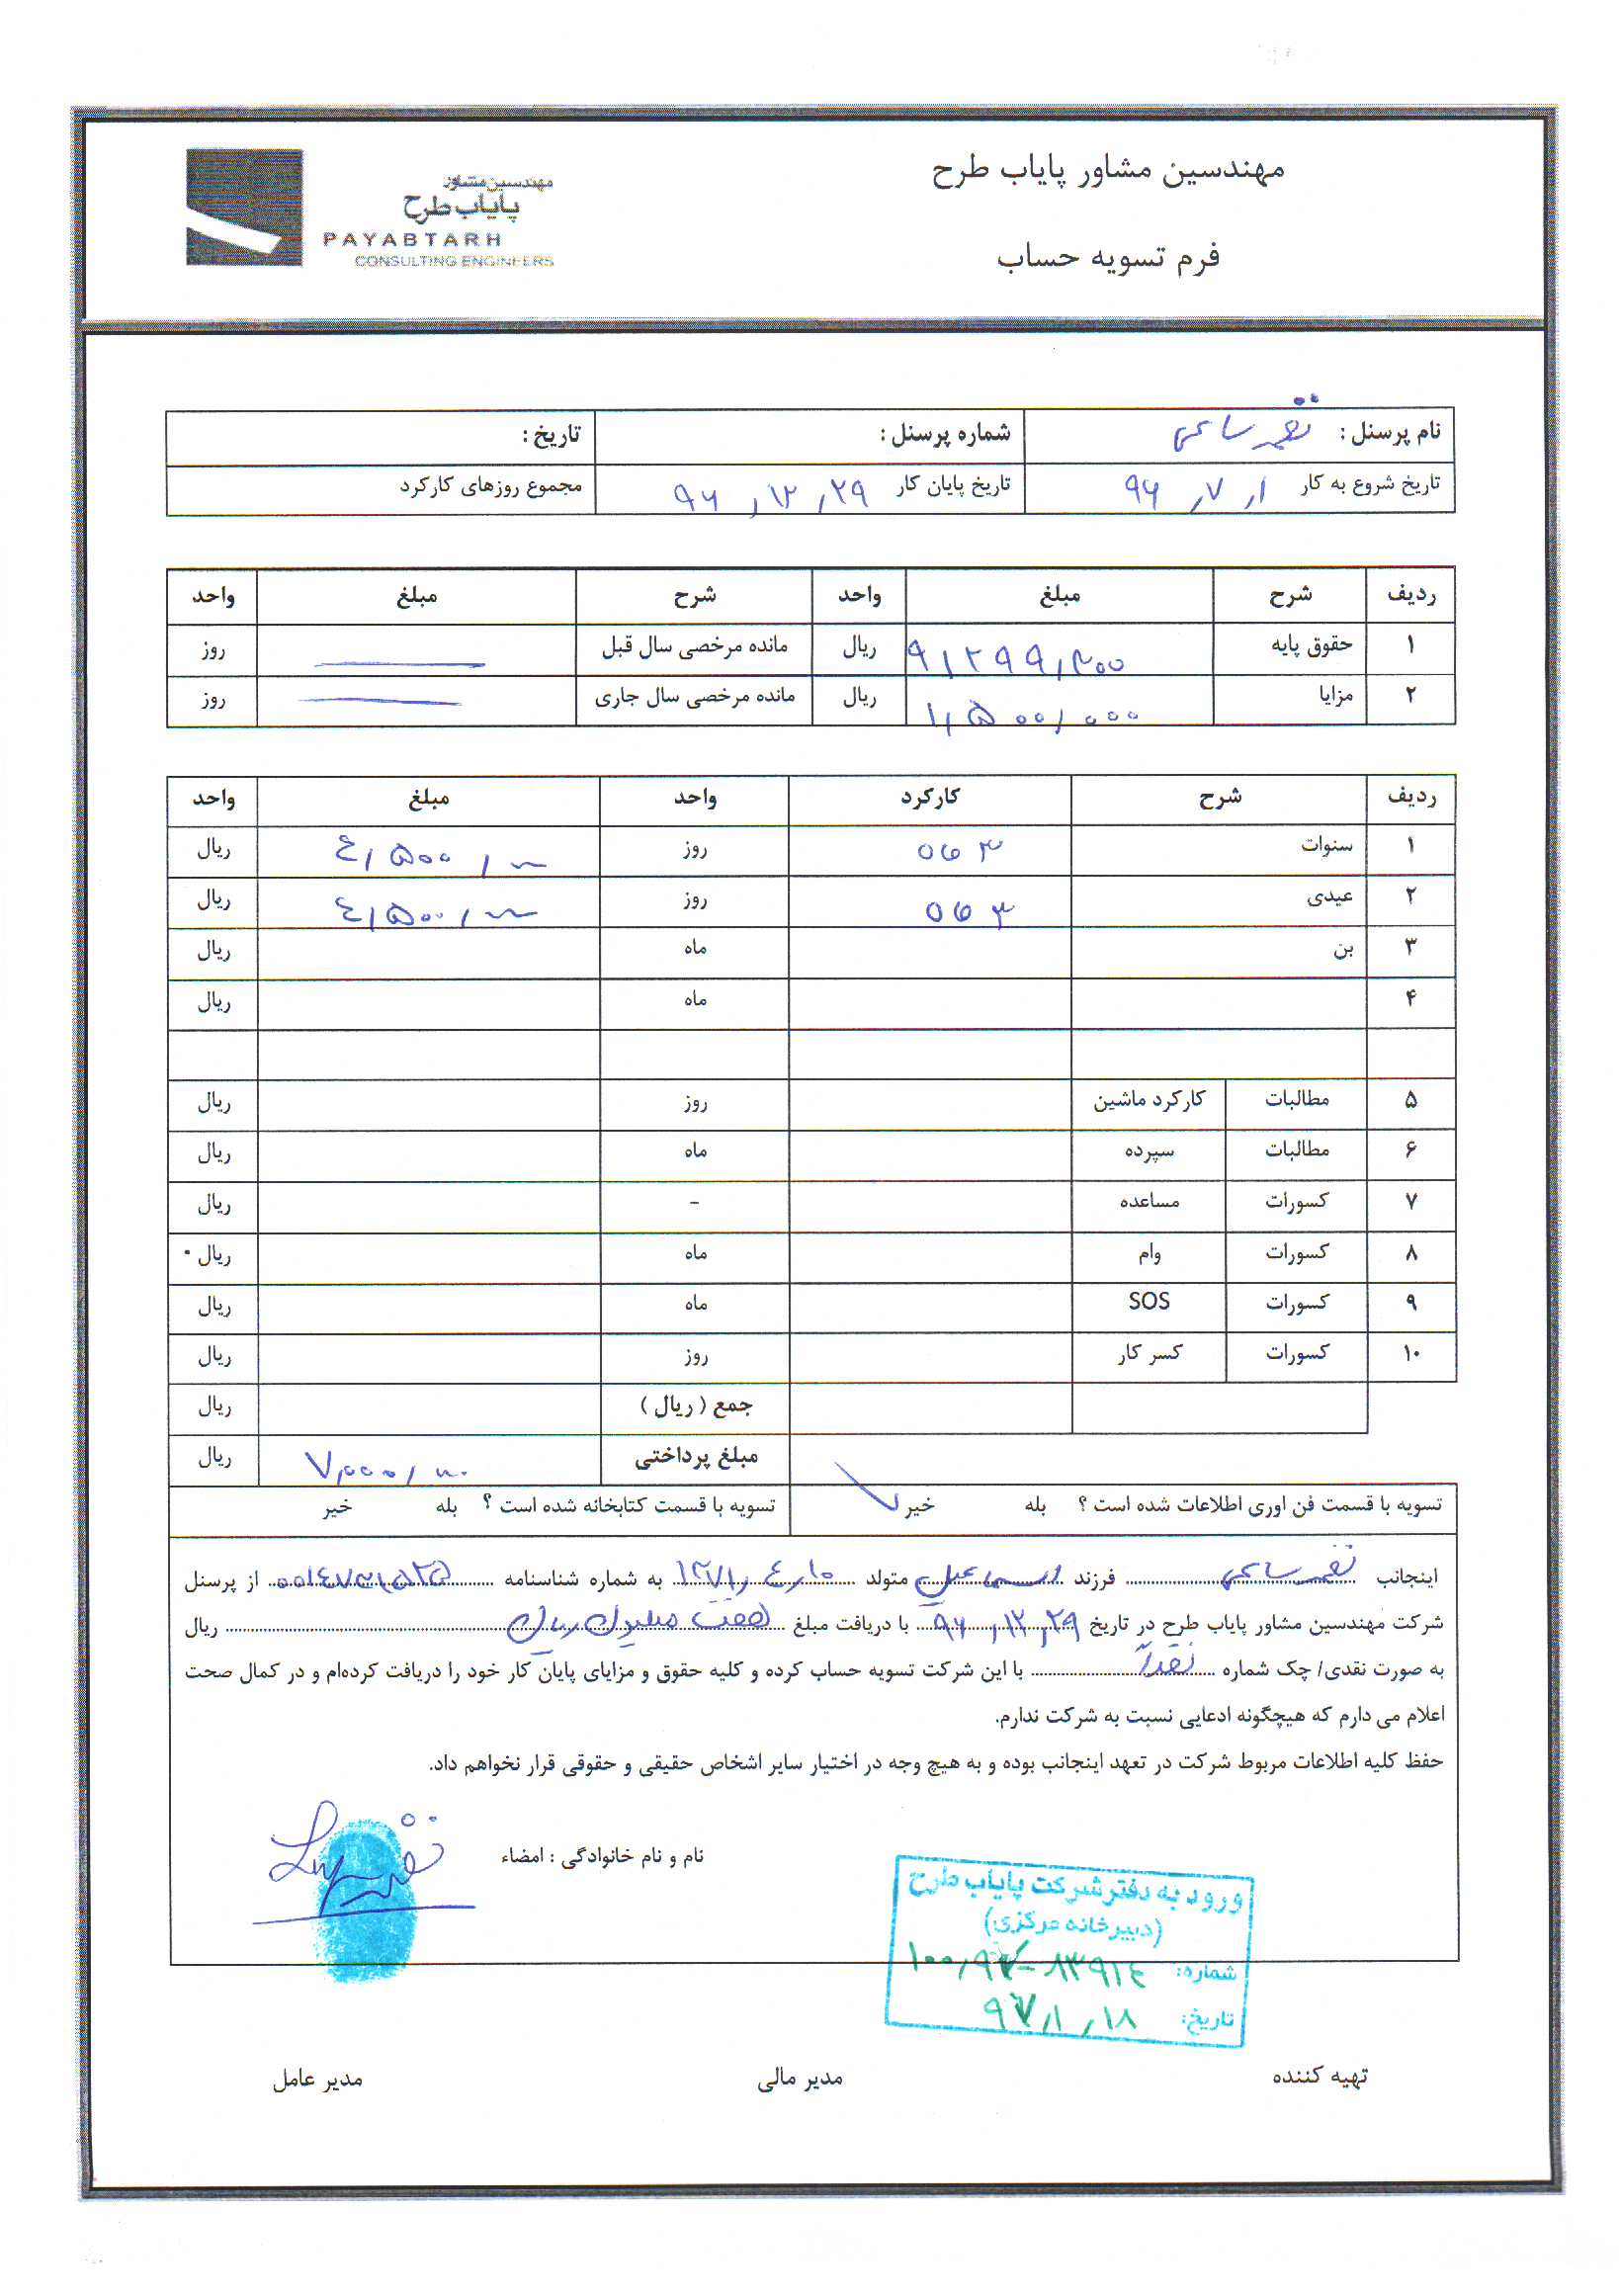 مهندسین مشاور پایاب طرح
فرم تسویه حساب
مهندسین مشاور
پایاب طرح
PAYABTARH
CONSULTING ENGINEERS
نام پرسنل : شماره پرسنل : تاریخ :
تاریخ شروع به کار ۹۶٫۷٫۱ تاریخ پایان کار ۹۶٫۱۲٫۲۹ مجموع روزهای کارکرد
ردیف شرح مبلغ واحد شرح مبلغ واحد
۱ حقوق پایه ۹٫۲۹۹٫۳۰۰ ریال مانده مرخصی سال قبل روز
۲ مزایا ۱٫۵۰۰٫۰۰۰ ریال مانده مرخصی سال جاری روز
ردیف شرح کارکرد واحد مبلغ واحد
۱ سنوات روز ریال
۲ عیدی روز ریال
۳ بن ماه ریال
۴ ماه ریال
۵ مطالبات کارکرد ماشین روز ریال
۶ مطالبات سپرده ماه ریال
۷ کسورات مساعده - ریال
۸ کسورات وام ماه ریال
۹ کسورات SOS ماه ریال
۱۰ کسورات کسر کار روز ریال
جمع ( ریال ) ریال
مبلغ پرداختی ریال
تسویه با قسمت فن اوری اطلاعات شده است ؟ بله خیر تسویه با قسمت کتابخانه شده است ؟ بله خیر
اینجانب فرزند اسماعیل متولد ۱۳۷۱٫۴٫۱۰ به شماره شناسنامه از پرسنل
شرکت مهندسین مشاور پایاب طرح در تاریخ ۹۶٫۱۲٫۲۹ با دریافت مبلغ هفت میلیون ریال ریال
به صورت نقدی/ چک شماره نقداً با این شرکت تسویه حساب کرده و کلیه حقوق و مزایای پایان کار خود را دریافت کرده‌ام و در کمال صحت
اعلام می دارم که هیچگونه ادعایی نسبت به شرکت ندارم.
حفظ کلیه اطلاعات مربوط شرکت در تعهد اینجانب بوده و به هیچ وجه در اختیار سایر اشخاص حقیقی و حقوقی قرار نخواهم داد.
نام و نام خانوادگی : امضاء
ورود به دفتر شرکت پایاب طرح
(دبیرخانه مرکزی)
شماره: ۱۰۰٫۹۷-۸۳۹۱۴
تاریخ: ۹۷٫۱٫۱۸
تهیه کننده مدیر مالی مدیر عامل